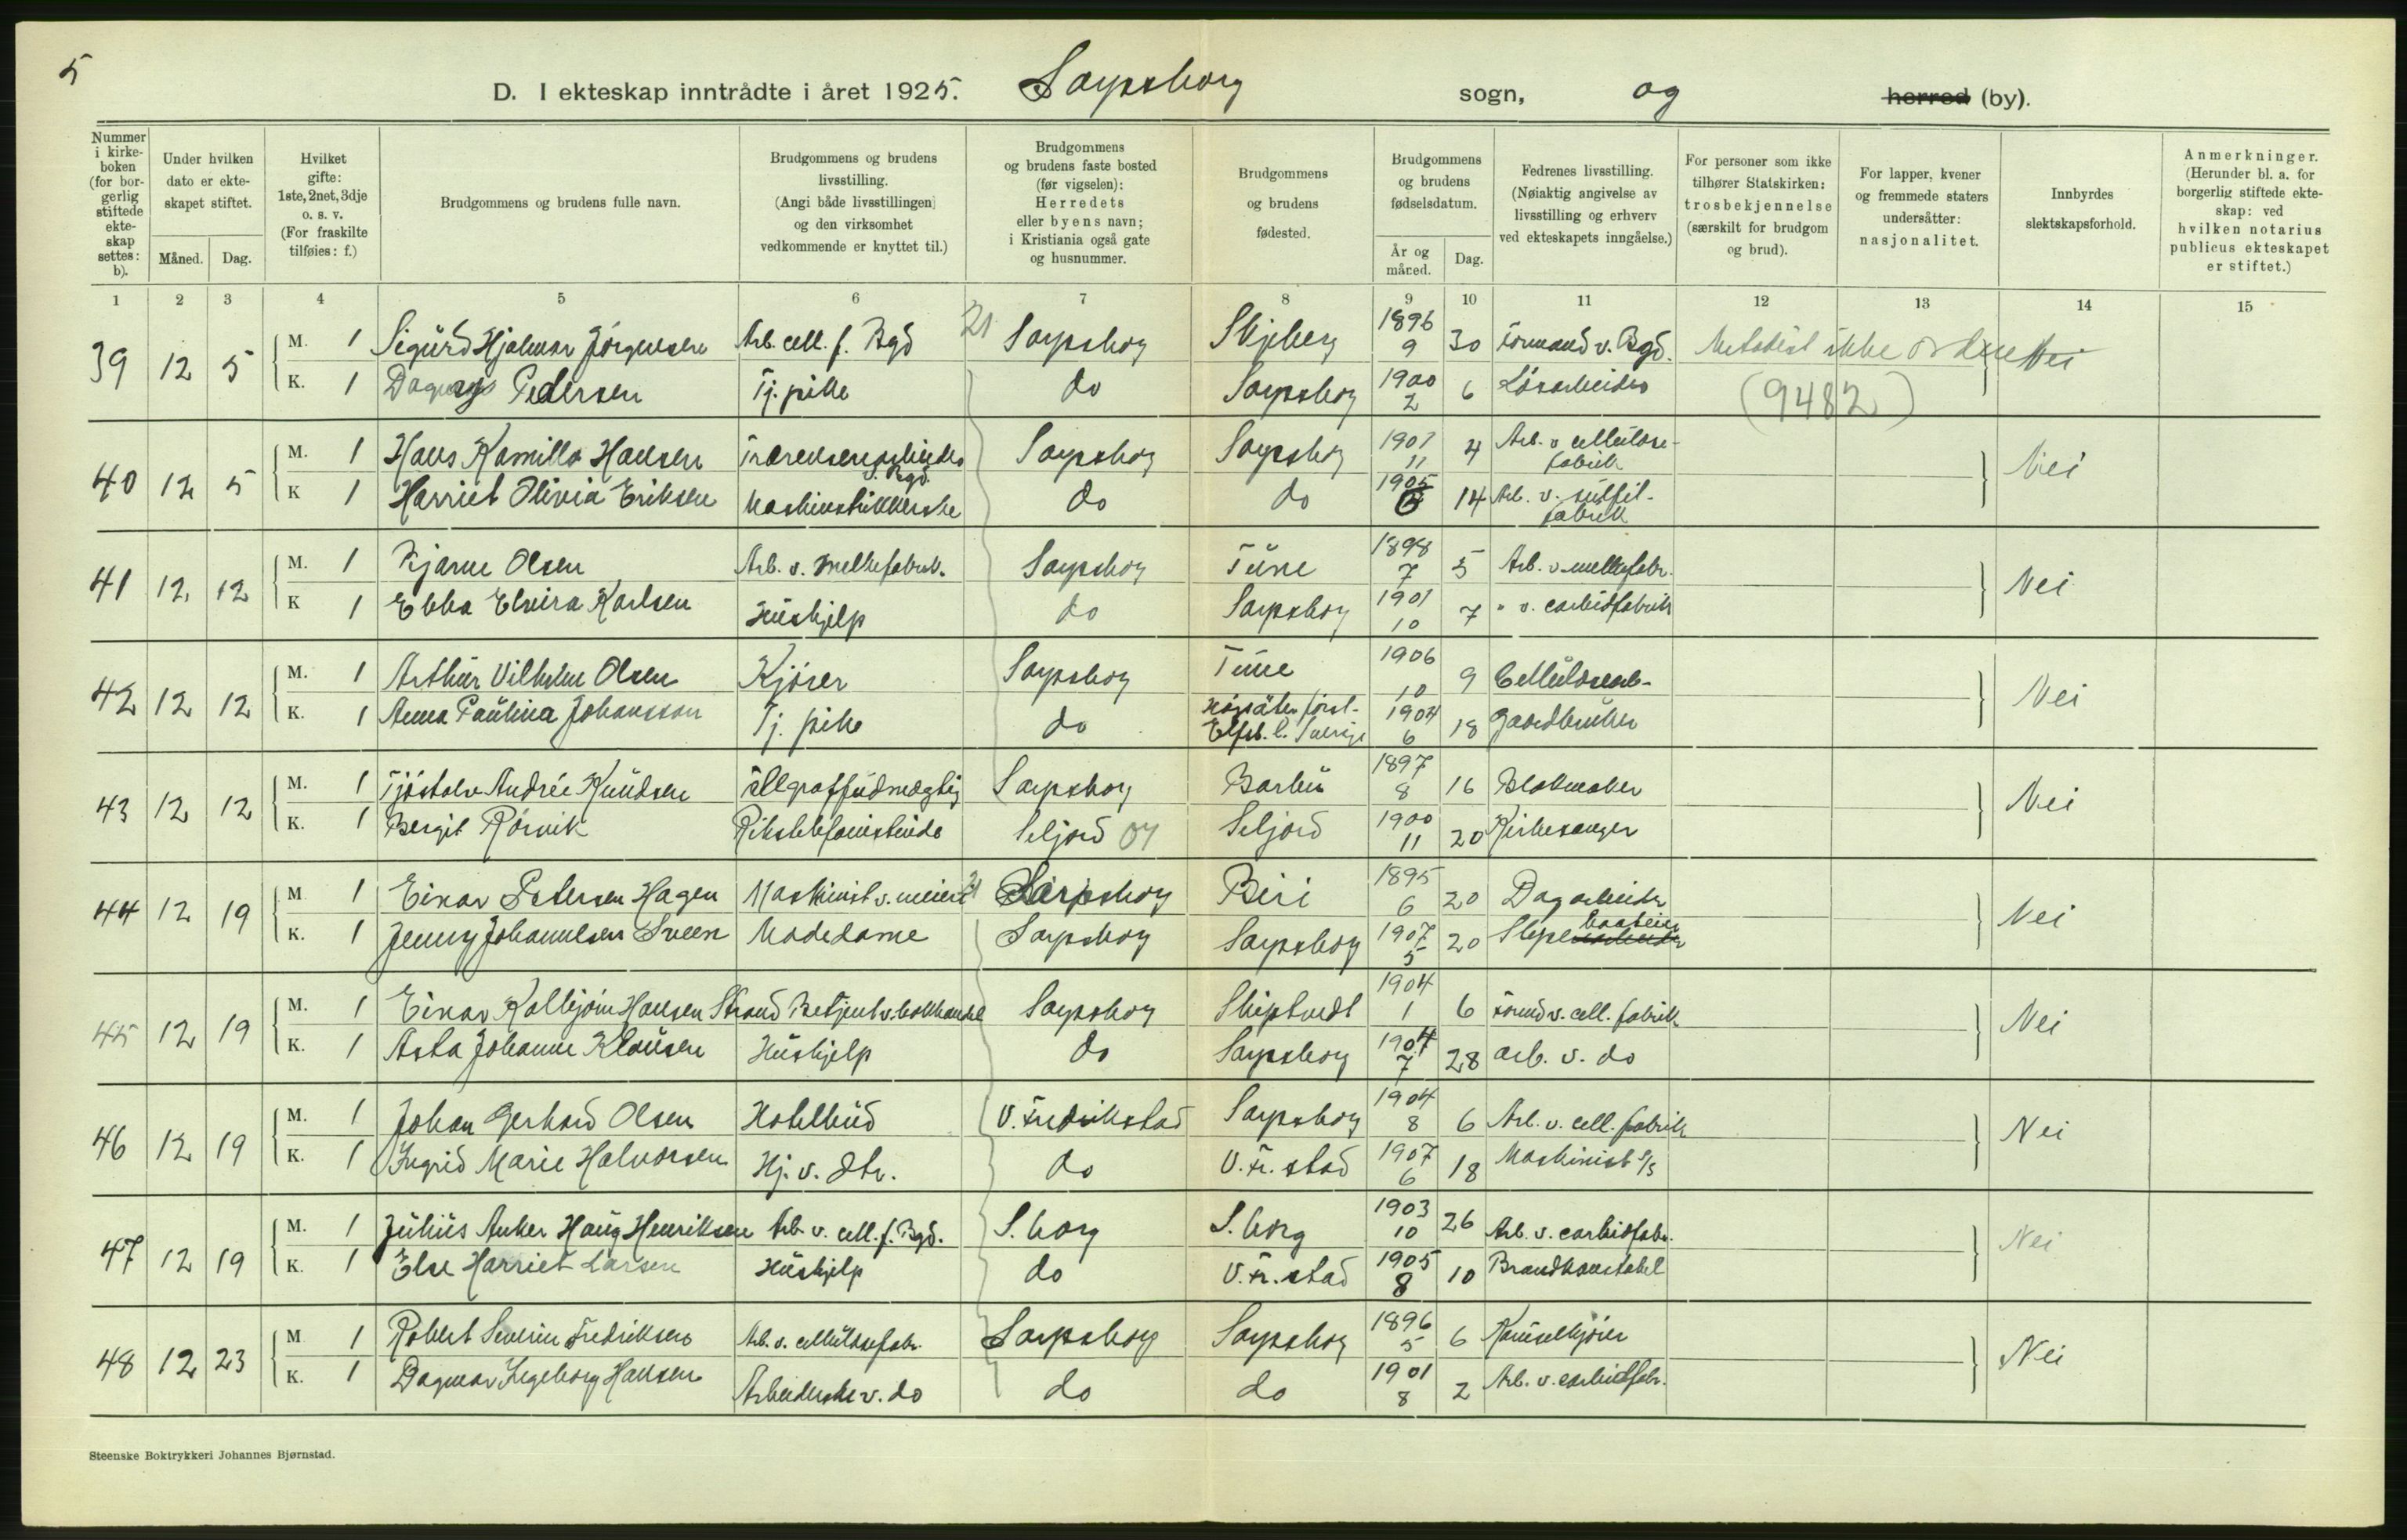 5
D. I ekteskap inntrådte i året 1925. Sarpsborg sogn, og herred (by).
Nummer i kirkeboken (for borgerlig stiftede ekteskap settes: b).
Under hvilken dato er ekteskapet stiftet.
Måned. Dag.
Hvilket gifte: 1ste, 2net, 3dje o. s. v. (For fraskilte tilføies: f.)
Brudgommens og brudens fulle navn.
Brudgommens og brudens livsstilling. (Angi både livsstillingen og den virksomhet vedkommende er knyttet til.)
Brudgommens og brudens faste bosted (før vigselen): Herredets eller byens navn; i Kristiania også gate og husnummer.
Brudgommens og brudens fødested.
Brudgommens og brudens fødselsdatum.
År og måned. Dag.
Fedrenes livsstilling. (Nøiaktig angivelse av livsstilling og erhverv ved ekteskapets inngåelse.)
For personer som ikke tilhører Statskirken: trosbekjennelse (særskilt for brudgom og brud).
For lapper, kvener og fremmede staters undersåtter: nasjonalitet.
Innbyrdes slektskapsforhold.
Anmerkninger. (Herunder bl. a. for borgerlig stiftede ekteskap: ved hvilken notarius publicus ekteskapet er stiftet.)
1 2 3 4 5 6 7 8 9 10 11 12 13 14 15
39 12 5 M. 1 Sigurd Hjalmar Jörgensen Arb. cell. f. Bgd 21 Sarpsborg Skjeberg 1896 9 30 Formand v. Bgd. Metodist ikke Nei
K. 1 Dagny Pedersen Tj. pike do Sarpsborg 1900 2 6 Lösarbeider (9482)
40 12 5 M. 1 Hans Kamillo Hansen Sarpsborg Sarpsborg 1901 11 4 Arb. v cellulosefabrik Nei
K 1 Harriet Olivia Eriksen Maskinstrikkerske do do 1905 14 Arb. v. sulfitfabrik
41 12 12 M. 1 Bjarne Olsen Arb. v. melkefabrik. Sarpsborg Tune 1898 7 5 Arb. v melkefabr. Nei
K 1 Ebba Elvira Karlsen Hushjelp do Sarpsborg 1901 10 7 " v. carbidfabrik
42 12 12 M. 1 Arthur Vilhelm Olsen Kjörer Sarpsborg Tune 1906 10 9 Cellulosearb. Nei
K. 1 Anna Paulina Johansson Tj. pike do Elfsb. l. Sverige 1904 6 18 Gaardbruker
43 12 12 M. 1 Tjöstolv Andrée Knudsen Tellgraffuldmægtig Sarpsborg Barbu 1897 8 16 Blokmaker Nei
K. 1 Bergit Rörvik Rikstelefonistinde Seljord 04 Seljord 1900 11 20 Kirkesanger
44 12 19 M 1 Einar Petersen Hagen Maskinist v. meieri 21 Sarpsborg Biri 1895 6 20 Dagarbeider Nei
K. 1 Jenny Johannesen Sveen Modedame Sarpsborg Sarpsborg 1907 5 20
45 12 19 M. 1 Einar Kolbjörn Hansen Strand Betjent v. bokhandel Sarpsborg Skiptvedt 1904 1 6 Formd v. cell. fabrik Nei
K. 1 Asta Johanne Klausen Hushjelp do Sarpsborg 1904 7 28 arb. v. do
46 12 19 M. 1 Johan Gerhard Olsen Hotelbud V. Fredrikstad Sarpsborg 1904 8 6 Arb. v. cell. fabrik Nei
K. 1 Ingrid Marie Halvorsen Hj. v. dtr. do V. Fr. stad 1907 6 18 Maskinist S/S
47 12 19 M. 1 Julius Anker Haug Henriksen Arb. v. cell. f. Bgd. S. borg S. borg 1903 10 26 Arb. v. carbidfabr. Nei
K. 1 Else Harriet Larsen Hushjelp do V. Fr. stad 1905 8 10 Brandkonstabel
48 12 23 M 1 Robert Severin Fredriksen Arb. v. cellulosefabr. Sarpsborg Sarpsborg 1896 5 6 Nei
K. 1 Dagmar Ingeborg Hansen Arbeiderske v. do do do 1901 8 2 Arb. v. carbidfabr.
Steenske Boktrykkeri Johannes Bjørnstad.